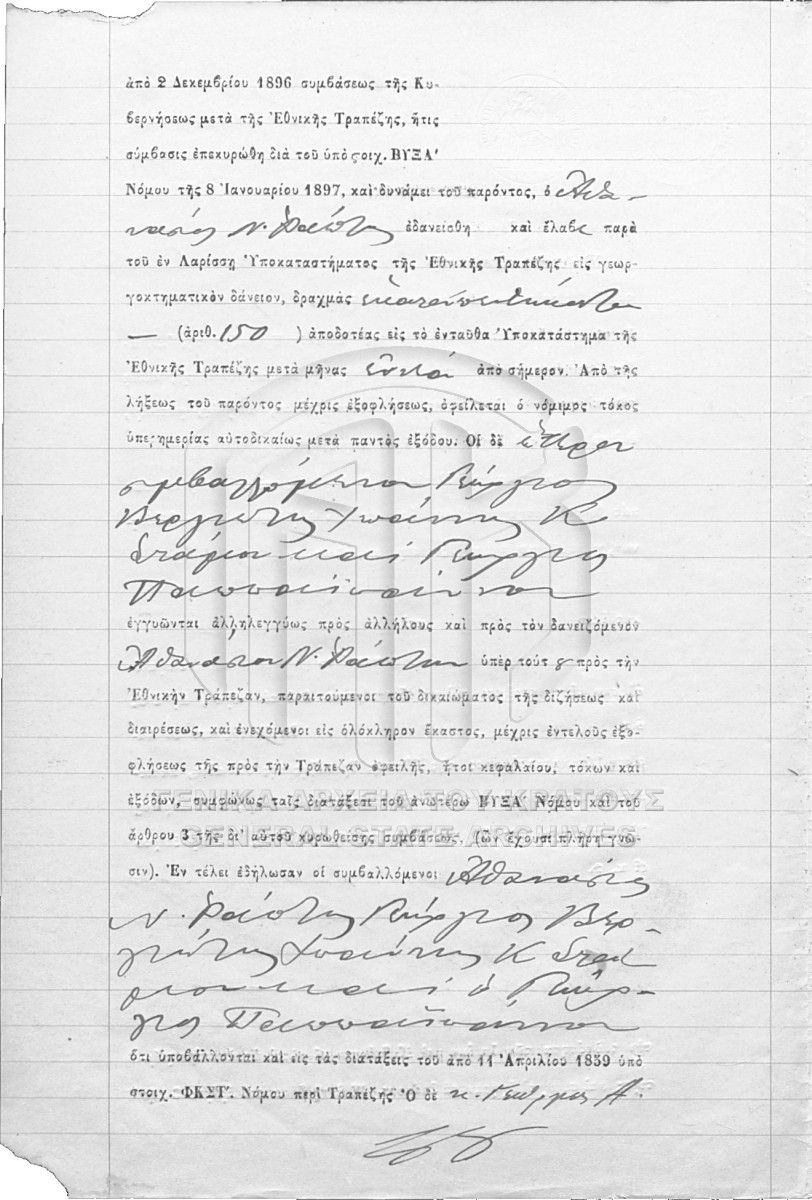 ἀπὸ 2 Δεκεμβρίου 1896 συμβάσεως τῆς Κυ-
βερνήσεως μετὰ τῆς Ἐθνικῆς Τραπέζης, ἥτις
σύμβασις ἐπεκυρώθη διὰ τοῦ ὑπὸ στοιχ. ΒΥΞΑ′
Νόμου τῆς 8 Ἰανουαρίου 1897, καὶ δυνάμει τοῦ παρόντος, ὁ Ἀθα-
νάσιος Ν. Ῥάπτης ἐδανείσθη καὶ ἔλαβε παρὰ
τοῦ ἐν Λαρίσσῃ Ὑποκαταστήματος τῆς Ἐθνικῆς Τραπέζης εἰς γεωρ-
γοκτηματικὸν δάνειον, δραχμὰς ἑκατὸν πεντήκοντα
— (ἀριθ. 150 ) ἀποδοτέας εἰς τὸ ἐνταῦθα Ὑποκατάστημα τῆς
Ἐθνικῆς Τραπέζης μετὰ μῆνας ἐννέα ἀπὸ σήμερον. Ἀπὸ τῆς
λήξεως τοῦ παρόντος μέχρις ἐξοφλήσεως, ὀφείλεται ὁ νόμιμος τόκος
ὑπερημερίας αὐτοδικαίως μετὰ παντὸς ἐξόδου. Οἱ δὲ ἕτεροι
συμβαλλόμενοι Γεώργιος
Βεργιώτης Ἰωάννης Κ
Σταμου καὶ Γεώργιος
Παππαϊωάννου
ἐγγυῶνται ἀλληλεγγύως πρὸς ἀλλήλους καὶ πρὸς τὸν δανειζόμενον
Ἀθανάσιον Ν. Ῥάπτην ὑπὲρ τούτου πρὸς τὴν
Ἐθνικὴν Τράπεζαν, παραιτούμενοι τοῦ δικαιώματος τῆς διζήσεως καὶ
διαιρέσεως, καὶ ἐνεχόμενοι εἰς ὁλόκληρον ἕκαστος, μέχρις ἐντελοῦς ἐξο-
φλήσεως τῆς πρὸς τὴν Τράπεζαν ὀφειλῆς, ἤτοι κεφαλαίου, τόκων καὶ
ἐξόδων, συμφώνως ταῖς διατάξεσι τοῦ ἀνωτέρω ΒΥΞΑ′ Νόμου καὶ τοῦ
ΓΕΝΙΚΑ ΑΡΧΕΙΑ ΤΟΥ ΚΡΑΤΟΥΣ
ἄρθρου 3 τῆς δι' αὐτοῦ κυρωθείσης συμβάσεως, (ὧν ἔχουσι πλήρη γνῶ-
GENERAL STATE ARCHIVES
σιν). Ἐν τέλει ἐδήλωσαν οἱ συμβαλλόμενοι Ἀθανάσιος
Ν. Ῥάπτης Γεώργιος Βερ-
γιώτης Ἰωάννης Κ Στα
μου καὶ ὁ Γεώρ-
γιος Παππαϊωάννου
ὅτι ὑποβάλλονται καὶ εἰς τὰς διατάξεις τοῦ ἀπὸ 11 Ἀπριλίου 1859 ὑπὸ
στοιχ. ΦΚΣΤ′. Νόμου περὶ Τραπέζης Ὁ δὲ κ. Γεώργιος Α.